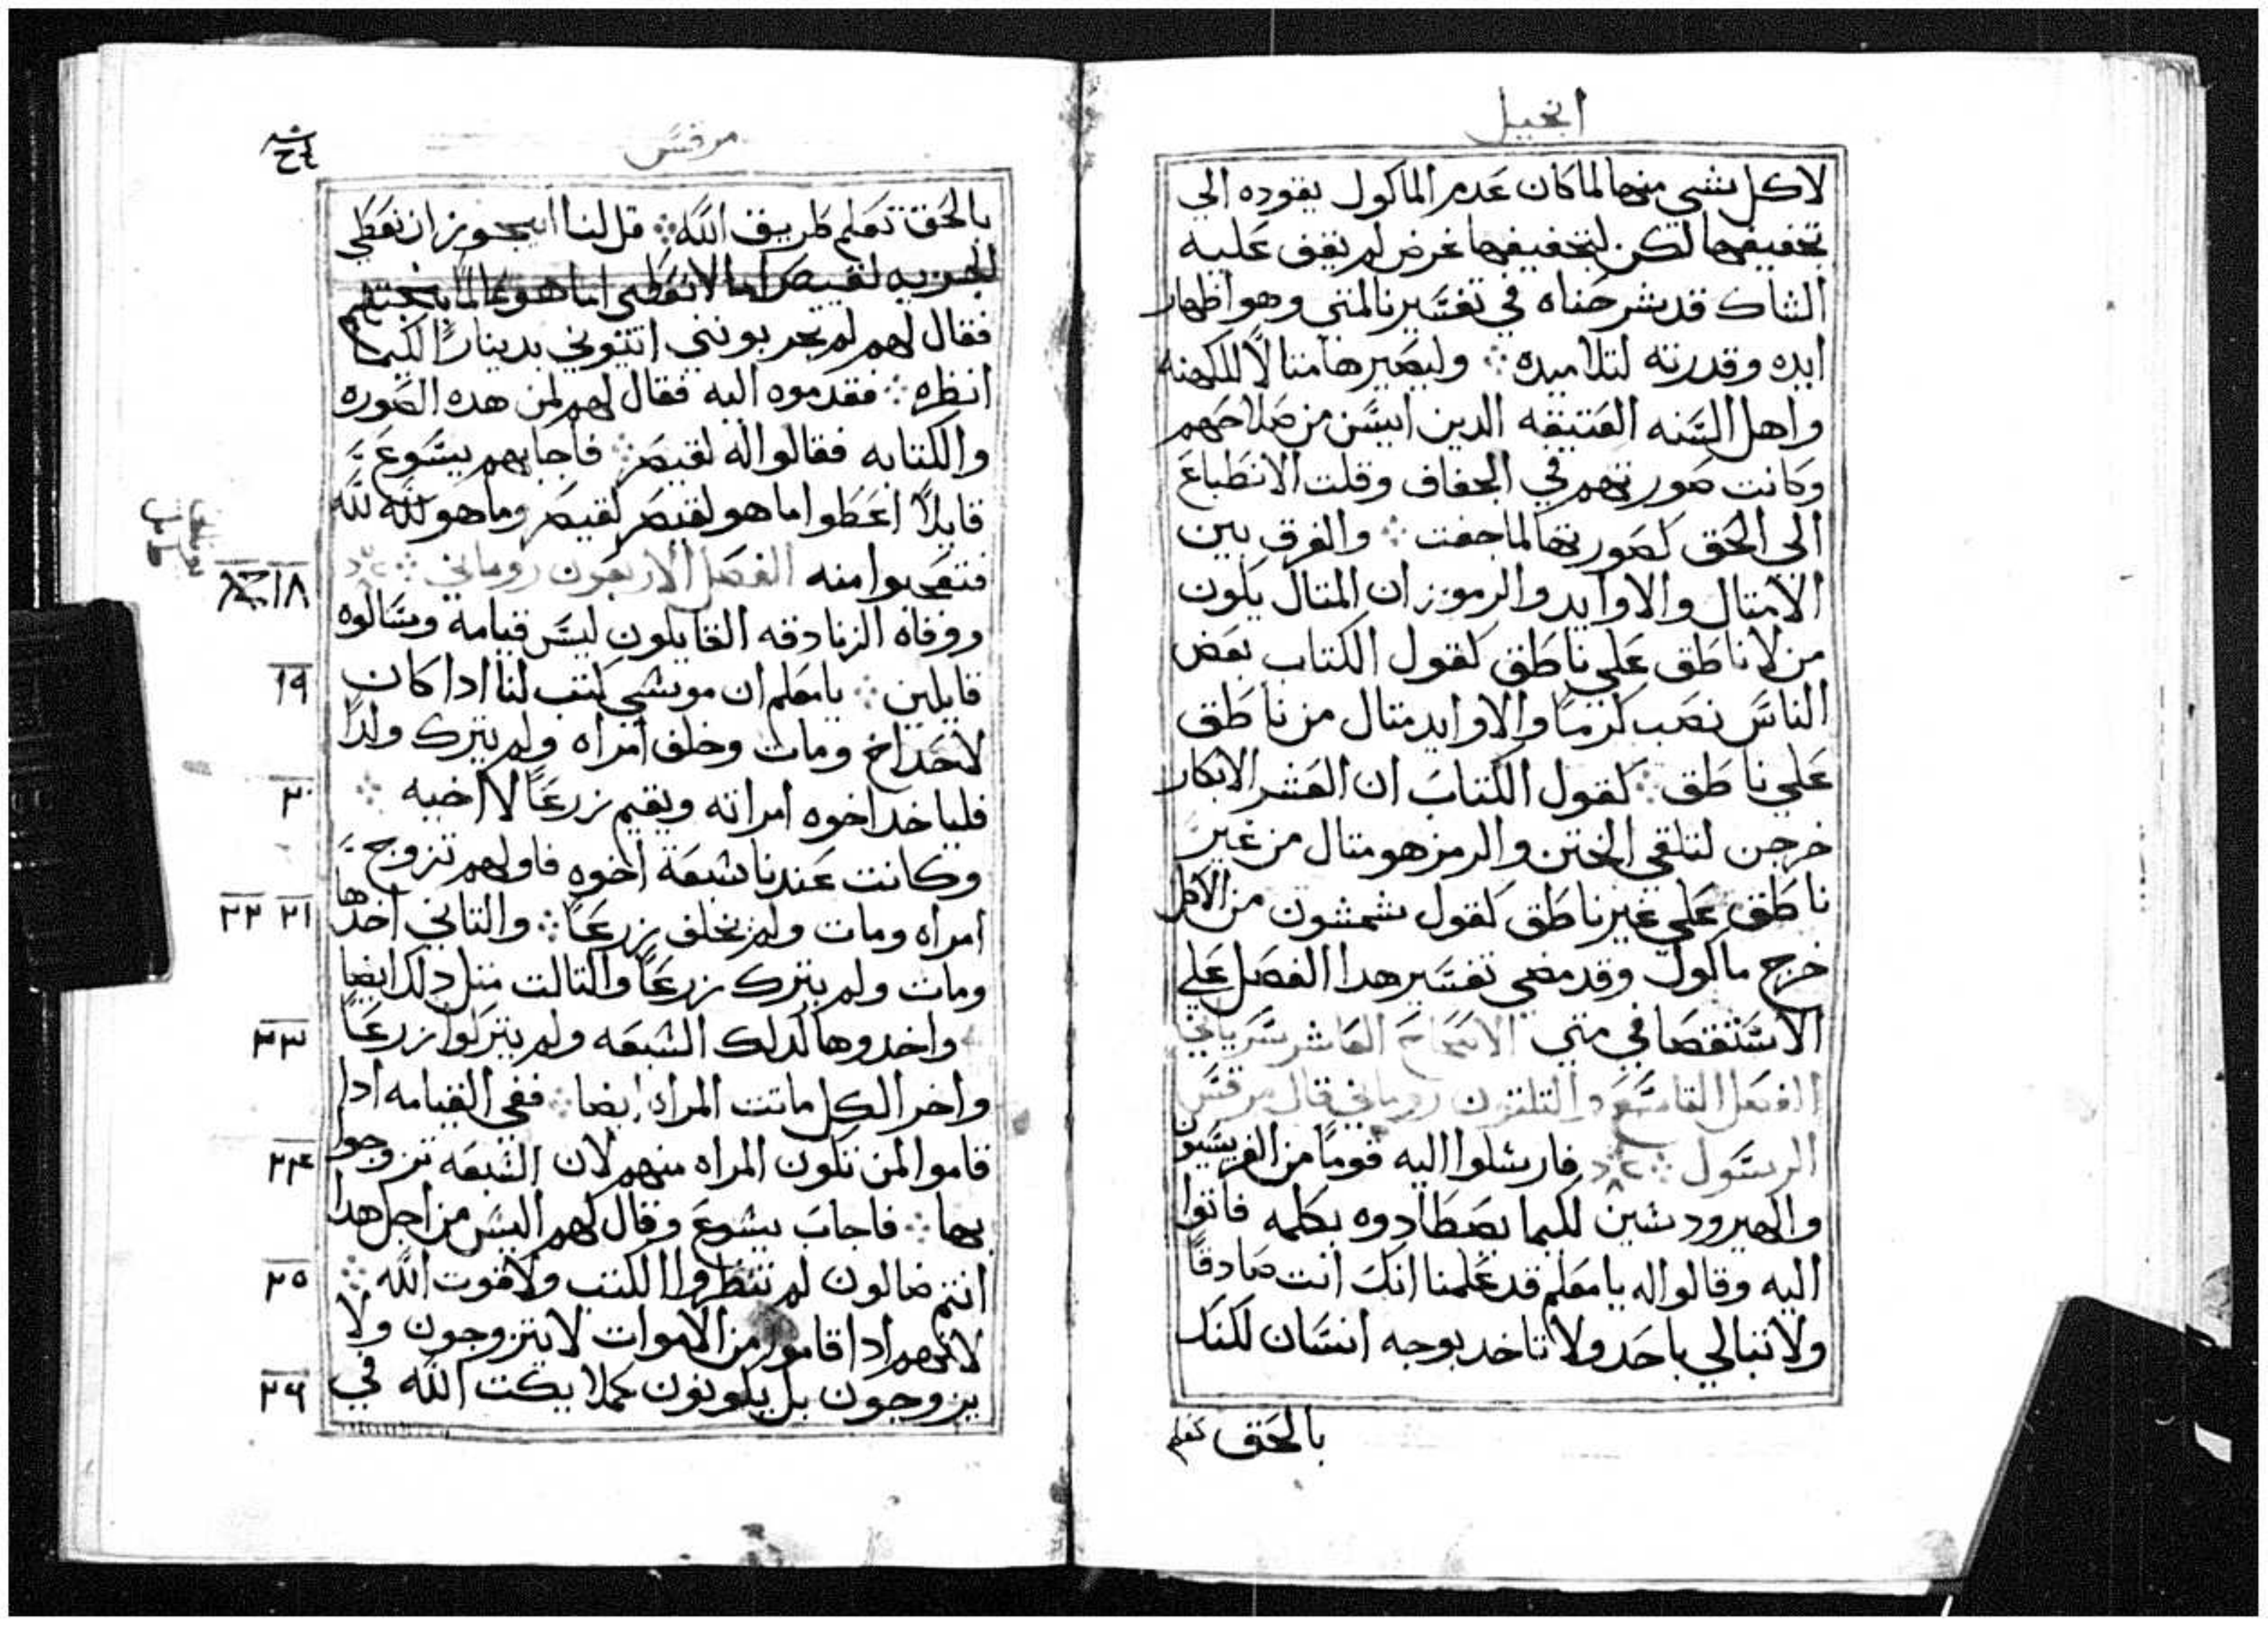 انجيل
لاكل شي منها لما كان عدم الماكول يقوده الي
تخفيفها لكن لتخفيفها غرض لم يقف عليه
الشاك قد شرحناه في تفسيرنا لمتي وهو اظهار
ايده وقدرته لتلاميده ܀ وليصيرها متالًا للكهنه
واهل السنه العتيقه الدين ايسن من صلاحهم
وكانت صورتهم في الجفاف وقلت الانطباع
الي الحق كصورتها لما جفت ܀ والفرق بين
الامتال والاوابد والرموز ان المتال يكون
من لا ناطق علي ناطق كقول الكتاب بعض
الناس نصب كرمًا والاوابد متال من ناطق
علي ناطق ܀ كقول الكتاب ان العشر الابكار
خرجن لتلقي الختن والرمز هو متال من غير
ناطق علي غير ناطق كقول شمشون من الاكل
خرج ماكول وقد مضي تفسير هدا الفصل علي
الاستقصا في متي الاصحاح العاشر سرياني
الفصل التاسع والتلتون روماني قال مرقس
الرسول ܀ فارسلوا اليه قومًا من الفريسيون
والهيرودسين لكيما يصطادوه بكلمه فاتوا
اليه وقالوا له يا معلم قد علمنا انك انت صادقًا
ولا تبالي باحد ولا تاخد بوجه انسان لكنك
بالحق تعلم
مرقس
بالحق تعلم طريق الله ܀ قل لنا ايجوز ان نعطي
الجزيه لقيصر اما لا نعطي اما هو
فقال لهم لم تجربونني ائتوني بدينارًا لكيما
انظره ܀ فقدموه اليه فقال لهم لمن هده الصوره
والكتابه فقالوا له لقيصر ܀ فاجابهم يسوع
قايلًا اعطوا ما هو لقيصر لقيصر وما هو لله لله
فتعجبوا منه الفصل الاربعون روماني ܀
١٨ ووفاه الزنادقه القايلون ليس قيامة وسالوه
١٩ قايلين ܀ يا معلم ان موسي كتب لنا ادا كان
لاحد اخ ومات وخلف امراه ولم يترك ولدًا
٢٠ فلياخد اخوه امراته ويقيم زرعًا لاخيه ܀
وكانت عندنا سبعة اخوه فاولهم تزوج
٢١ ٢٢ امراه ومات ولم يخلف زرعًا ܀ والتاني اخدها
ومات ولم يترك زرعًا والتالت متل دلك ايضا
٢٣ واخدوها كدلك السبعه ولم يتركوا زرعًا
واخر الكل ماتت المراه ايضا ܀ ففي القيامه ادا
٢٤ قاموا لمن تكون المراه منهم لان السبعه تزوجوا
بها ܀ فاجاب يسوع وقال لهم اليس من اجل هدا
٢٥ انتم ضالون لم تنظروا الكتب ولا قوت الله ܀
لانهم ادا قاموا من الاموات لا يتزوجون ولا
٢٦ يزوجون بل يكونون كملايكت الله في